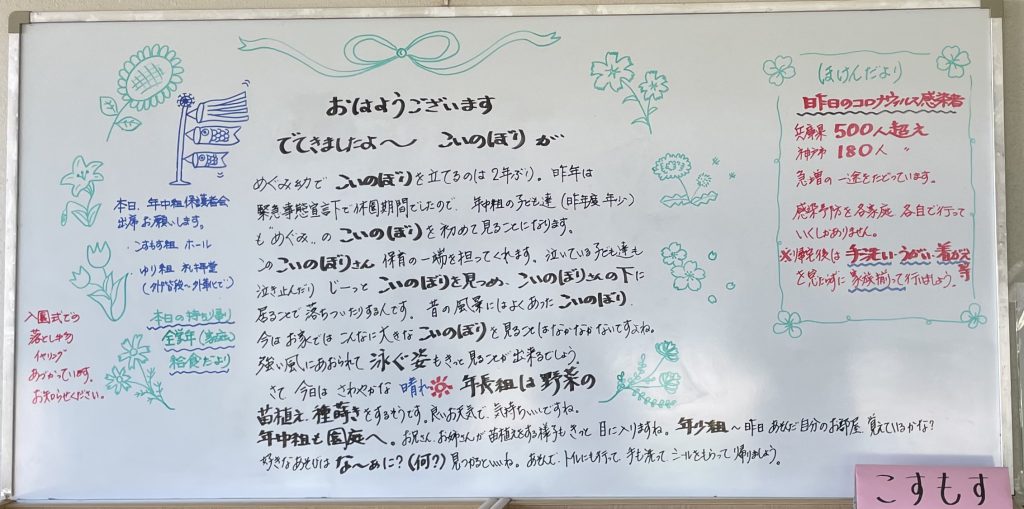 おはようございます
でてきましたよ～ こいのぼりが
めぐみ幼で こいのぼりを立てるのは2年ぶり。昨年は
緊急事態宣言下で休園期間でしたので、年中組の子ども達（昨年度年少）
も“めぐみ”の こいのぼりを初めて見ることになります。
この こいのぼりさん 保育の一端を担ってくれます。泣いている子ども達も
泣き止んだり じーっと こいのぼりを見つめ、こいのぼりさんの下に
居ることで落ちついたりするんです。昔の風景にはよくあった こいのぼり
今はお家では こんなに大きな こいのぼりを見ることはなかなかないですよね。
強い風にあおられて 泳ぐ姿もきっと見ることが出来るでしょう。
さて 今日は さわやかな 晴れ 年長組は野菜の
苗植え、種蒔きをするそうです。良いお天気で、気持ちいいですね。
年中組も園庭へ。お兄さん、お姉さんが苗植えをする様子もきっと目に入りますね。年少組～昨日あそんだ自分のお部屋、覚えているかな？
好きなあそびは な～ぁに？（何？）見つかるといいね。あそんで、トイレにも行って、手も洗って、シールをもらって帰りましょう。
本日、年中組保護者会
出席お願いします。
・こすもす組 ホール
・ゆり組 礼拝堂
本日の持ち帰り
全学年（各家庭）
給食だより
入園式での
落とし物
イヤリング
あづかっています。
お知らせください。
ほけんだより
昨日のコロナウィルス感染者
兵庫県 500人超え
神戸市 180人 〃
急増の一途をたどっています。
感染予防を各家庭 各自で行って
いくしかありません。
※帰宅後は 手洗い・うがい・着がえ等
を見たずに 家族揃って行いましょう。
こすもす